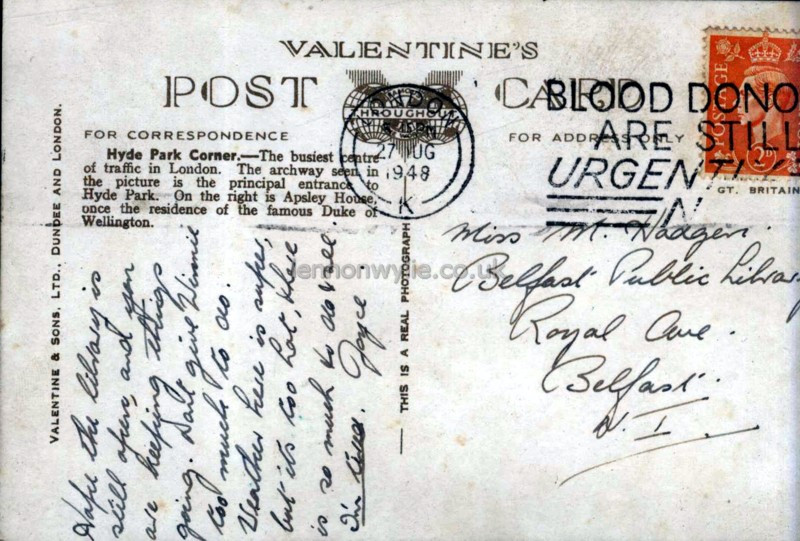 VALENTINE'S
POST CARD
FOR CORRESPONDENCE
FOR ADDRESS ONLY
Hyde Park Corner.—The busiest centre
of traffic in London. The archway seen in
the picture is the principal entrance to
Hyde Park. On the right is Apsley House,
once the residence of the famous Duke of
Wellington.
VALENTINE & SONS, LTD., DUNDEE AND LONDON.
Hope the library is
still open, and you
are keeping things
going. Don't give Winnie
too much to do.
Weather here is super,
but its too hot, there
is so much to do & see
Joyce
THIS IS A REAL PHOTOGRAPH
LONDON
27 AUG
1948
K
THROUGHOUT
BLOOD DONO
ARE STILL
URGENTLY
IN
POSTAGE
GT. BRITAIN
Miss M.
Belfast Public Library
Royal Ave.
Belfast.
N. I.
lennonwylie.co.uk